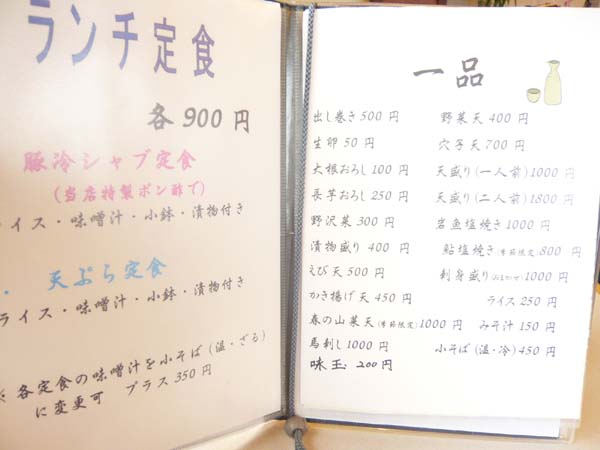 ランチ定食
各900円
豚冷シャブ定食
(当店特製ポン酢で)
ライス・味噌汁・小鉢・漬物付き
・天ぷら定食
ライス・味噌汁・小鉢・漬物付き
※各定食の味噌汁を小そば(温・ざる)
に変更可 プラス350円
一品
出し巻き500円
生卵50円
大根おろし100円
長芋おろし250円
野沢菜300円
漬物盛り400円
えび天500円
かき揚げ天450円
春の山菜天(季節限定)1000円
馬刺し1000円
味玉 200円
野菜天400円
穴子天700円
天盛り(一人前)1000円
天盛り(二人前)1800円
岩魚塩焼き1000円
鮎塩焼き(季節限定)800円
刺身盛り(おまかせ)1000円
ライス250円
みそ汁150円
小そば(温・冷)450円